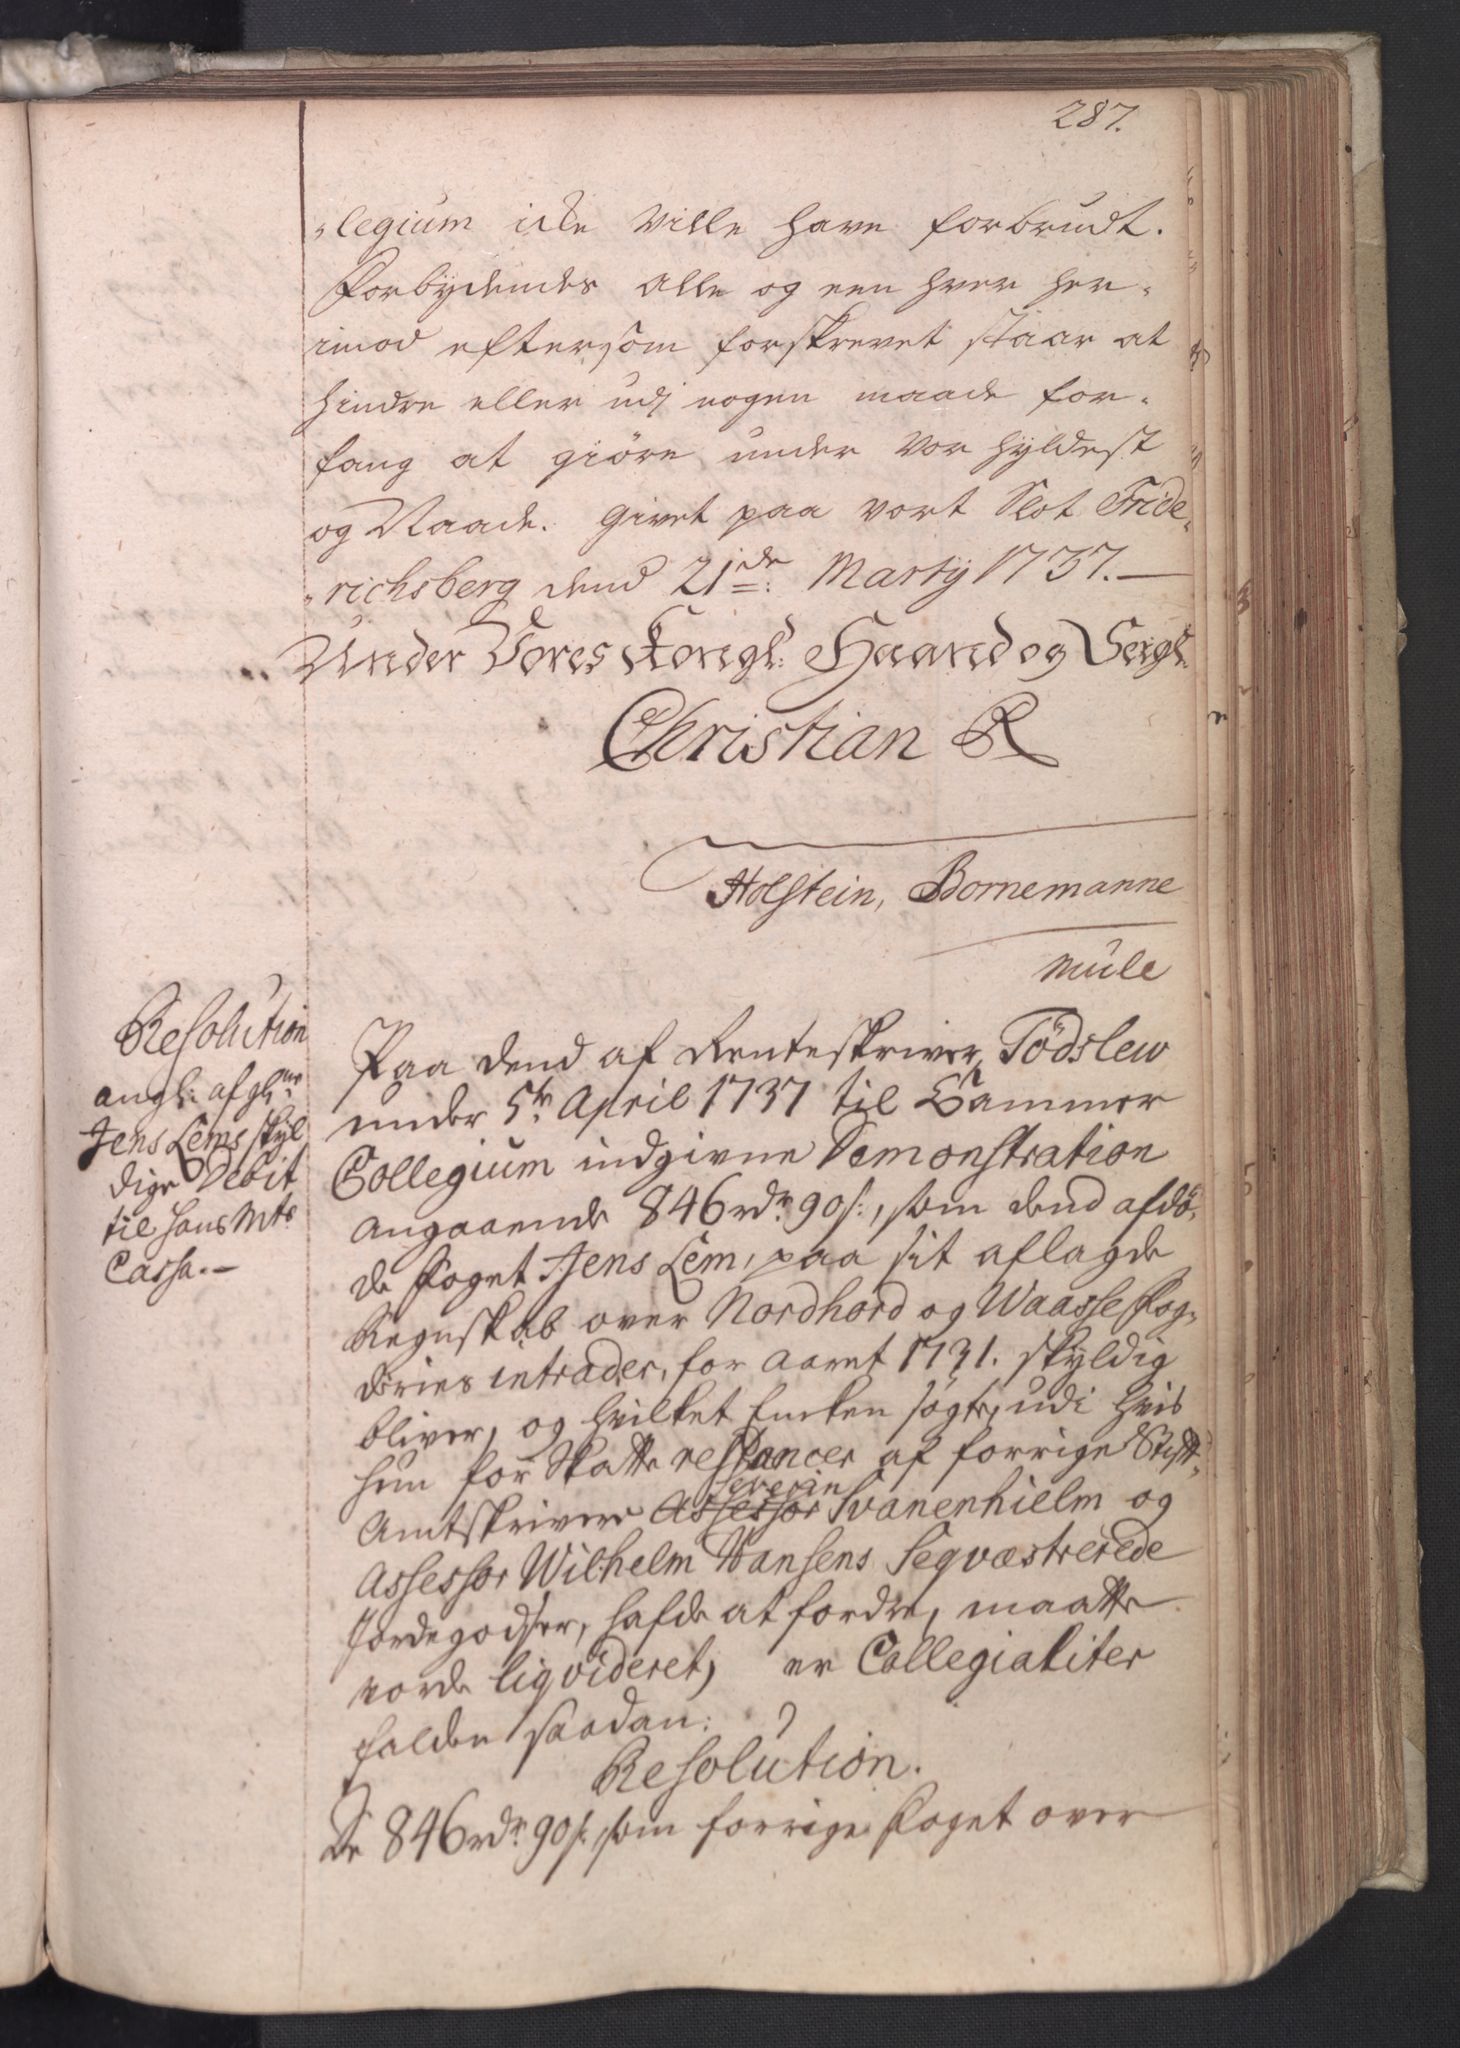 287.
legium icke ville have forbrudt.
Forbydendes alle og een hver her-
imod eftersom forskrevet staar at
hindre eller udj nogen maade for-
fang at giöre under vor hyldest
og Naade. givet paa vort Slot Fride-
richsberg dend 21de: Martij 1737.
Under Vores Kongl: Haand og Seigl.
Christian R
Holstein, Bornemanne
Mule
Resolution
angl: afgl:ne
Jens Lems skyl
dige Debit
til hans Mts
Cassa.
Paa dend af Renteskriver Tödslew
under 5te April 1737 til Cammer
Collegium indgivne Demonstration
angaaende 846 rdr 90 s:, som dend afdö-
de Foget Jens Lem, paa sit aflagde
Regnskab over Nordhord og Waasse Fog-
deries intrader, for aaret 1731. skyldig
bliver, og hvilket Encken sögte, udi hvis
hun for Skatte restancer af forrige Stift-
Amtskriver Assessor Severin Svanenhielm og
Assessor Wilhelm Hansens Seqvæstrerede
Jordegodser, hafde at fordre, maatte
vorde liqvideret, er Collegialiter
falden saadan:
Resolution.
De 846 rdr 90 s: som forrige Foget over